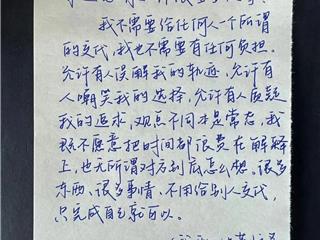 我不需要给任何人一个所谓
的交代,我也不需要有任何负担.
允许有人误解我的轨迹,允许有
人嘲笑我的选择,允许有人质疑
我的追求,观点不同才是常态,我
既不愿意把时间都浪费在解释
上,也无所谓对方到底怎么想.很多
东西、很多事情、不用给别人交代,
只完成自己就可以。